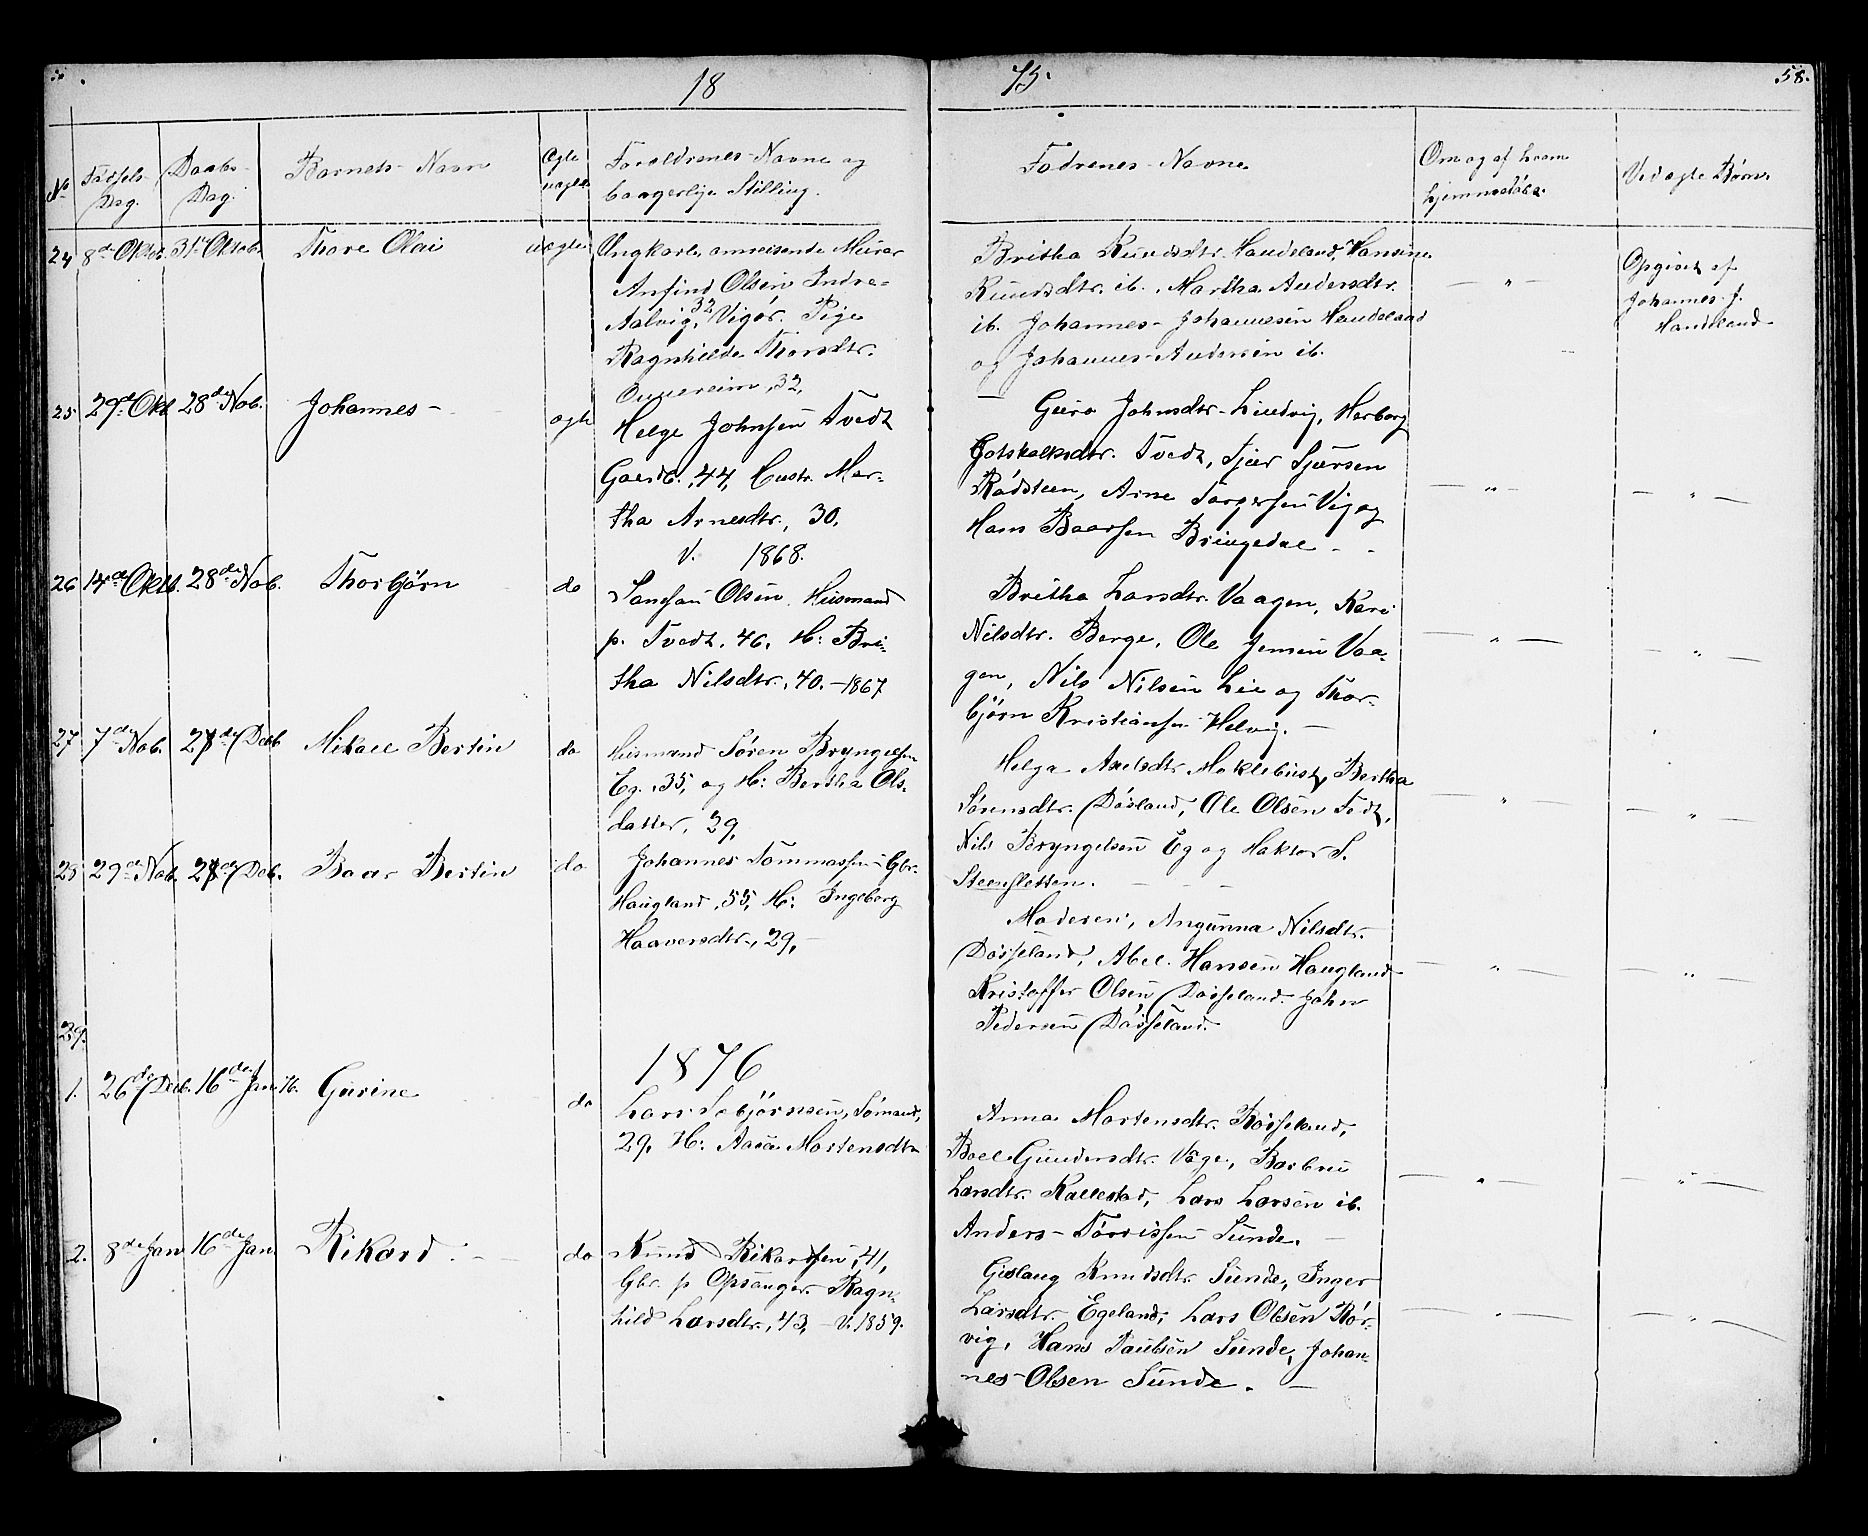 18 75. 58.
No Fødsels- Dag. Daabs- Dag. Barnets Navn Ægte uægte Forældrenes Navne og borgerlige Stilling. Faddrenes Navne Om og af hvem hjemmedøbt. Ved ægte Børn.
24 8de Oktob. 31te Oktob. Thore Olai uægte
Ungkarl, omreisende Murer
Anfind Olsen Indre-
Aalvig, 32, Vigør. Pige
Ragnhilde Thorsdtr.
32.
Britha Knudsdtr. Handeland, Hansine
Knudsdtr. ib., Martha Andersdtr.
ib. Johannes Johannessen Handeland
og Johannes Andersen ib.
— " —
Opgivet af
Johannes J.
Handeland
25 29de Okt. 28de Nob. Johannes - ægte
Helge Johnsen Tvedt
Gaardb., 44, Hustr. Mar-
tha Arnesdtr., 30.
V. 1868.
Guro Johnsdtr. Lindvig, Herborg
Gotskalksdtr. Tvedt, Sjur Sjursen
Rødsteen, Arne Torgersen Vig og
Hans Baarsen Bringedal - -
— " —
— " —
26 14de Oktb. 28de Nob. Thorbjørn do
Samson Olsen Husmand
p. Tvedt. 46. H: Bri-
tha Nilsdtr., 40. - 1867
Britha Larsdtr. Vaagen, Kari
Nilsdtr. Berge, Ole Jensen Vaa-
gen, Nils Nilsen Lie og Thor-
bjørn Kristiansen Helvig. —
— " —
— " —
27 7de Nob. 27de Decb. Mikael Bertin do
Husmand Søren Bryngelsen
Eg., 35, og H: Bertha Ols-
datter, 29,
Helga Axelsdtr. Møklebust, Bertha
Sørensdtr. Døsland, Ole Olsen
Nils Bryngelsen Eg og Haktor S.
Steensletten. - - -
— " —
— " —
28 29de Nob. 27de Deb. Baar Bertin do
Johannes Tommassen Gbr.
Haugland, 55, H: Ingeborg
Haaversdtr., 29, -
Moderen, Angunna Nilsdtr.
Døsseland, Abel Hansen Haugland
Kristoffer Olsen Døsseland. John
Pedersen Døsseland.
— " —
— " —
29.
1876
1. 26de Decb. 16de Jan. 76. Gurine do
Lars Sebjørnsen, Sømand,
29, H: Aasa Mortensdtr.
Anna Mortensdtr. Røsseland,
Boel Gundersdtr. Våge, Barbru
Larsdtr. Kallestad, Lars Larsen ib.
Anders Tørrissen Sunde. —
— " —
— " —
2. 8de Jan 16de Jan. Rikard - do
Knud Rikardsen, 41,
Gbr. p Opsanger Ragn-
hild Larsdtr., 43, - V. 1859.
Gislaug Knudsdtr. Sunde, Inger
Larsdtr. Egeland, Lars Olsen Rør-
vig, Hans Paulsen Sunde, Johan-
nes Olsen Sunde. —
— " —
— " —